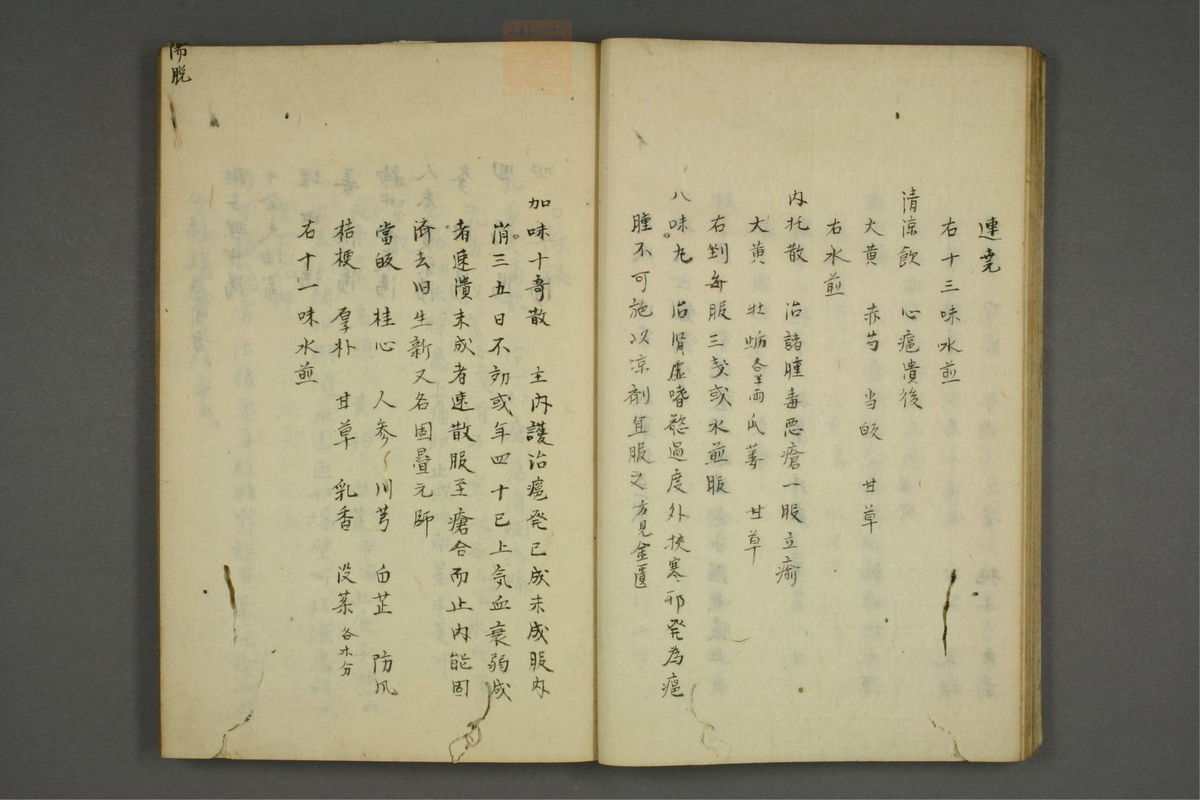 連尭
右十三味水煎
清涼飲　心瘟潰後
大黄　赤芍　当皈　甘草
右水煎
内托散　治諸腫毒悪瘡一服立瘉
大黄　牡蛎各半両瓜蔞　甘草
右剉每服三戔或水煎服
八味丸　治腎虚嗜慾過度外挾寒邪発為瘟
腫不可施以凉剤宜服之方見金匱
加味十奇散　主内護治瘟発已成未成服内
消三五日不効或年四十已上気血衰弱成
者速潰未成者速散服至瘡合而止内能固
済去旧生新又名固壘元師
當皈　桂心　人参　川芎　白芷　防风
桔梗　厚朴　甘草　乳香　没薬各木分
右十一味水煎
陽脱